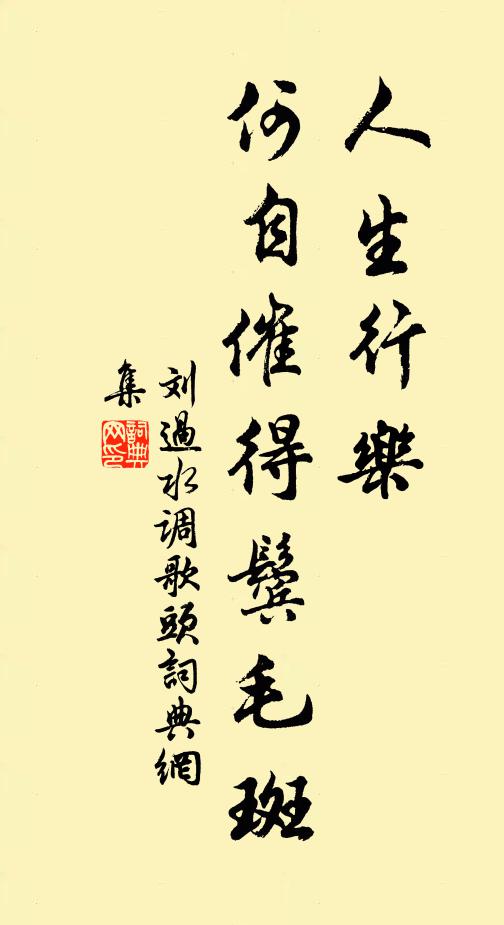 人生行樂
何自催得鬢毛斑
刘過水调歌頭詞典網
集
詞典网印